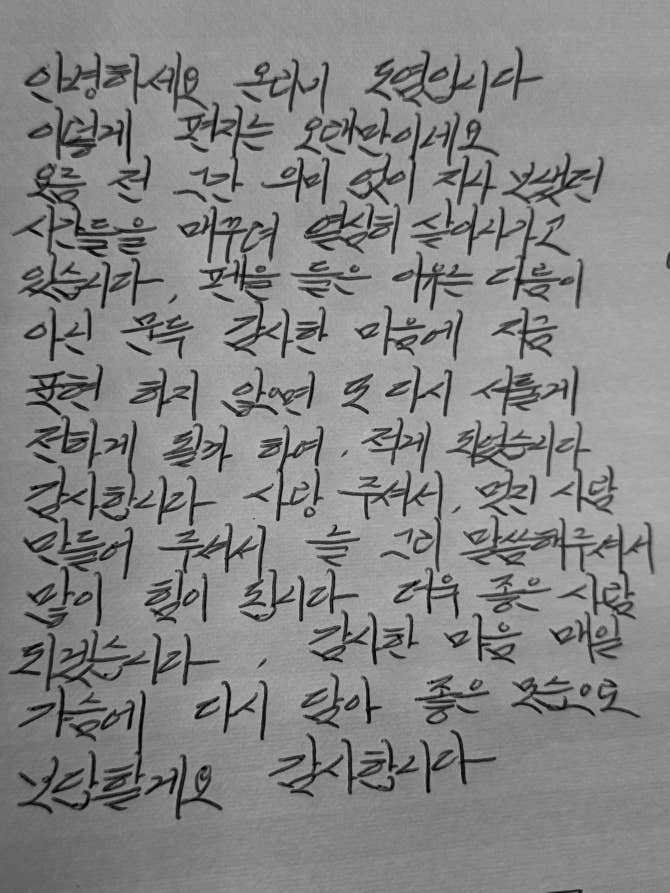 안녕하세요 온라이 도열입니다
이렇게 편지는 오랜만이네요
요즘 전 그간 의미 없이 지나 보냈던
시간들을 메꾸며 열심히 살아나가고
있습니다. 펜을 들은 이유는 다름이
아닌 문득 감사한 마음에 지금
표현 하지 않으면 또 다시 서툴게
전하게 될까 하여. 적게 되었습니다
감사합니다 사랑 주셔서. 멋진 사람
만들어 주셔서 늘 그리 말씀해주셔서
많이 힘이 됩니다 더욱 좋은 사람
되겠습니다. 감사한 마음 매일
가슴에 다시 담아 좋은 모습으로
보답할게요 감사합니다